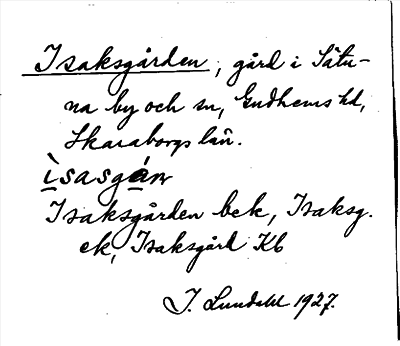 Isaksgården, gård i Sätu-
na by och sn, Gudhems hd,
Skaraborgs län.
ìsasgárn
Isaksgården bek, Isaksg.
ek, Isaksgård Kb
I. Lundahl 1927.